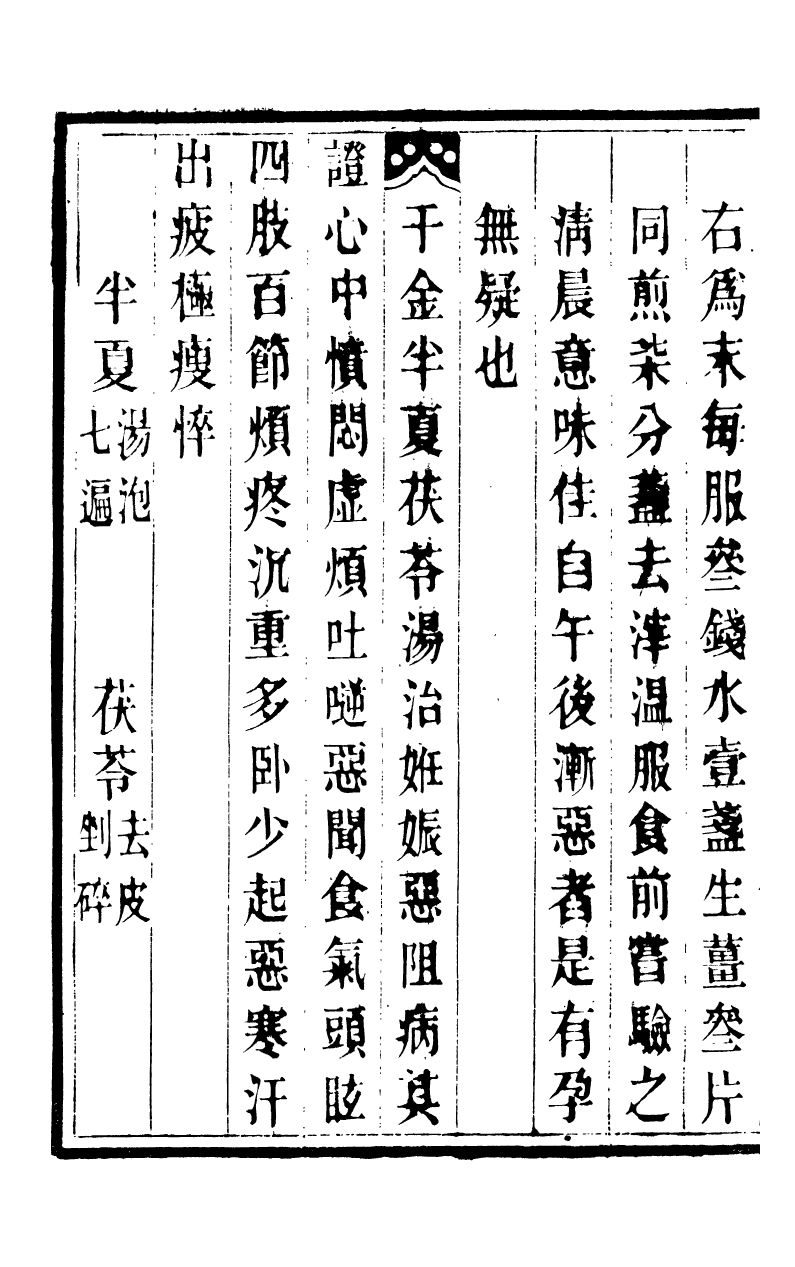 右爲末每服叄錢水壹盞生薑叄片
同煎柒分盞去滓溫服食前嘗驗之
淸晨意味佳自午後漸惡者是有孕
無疑也
千金半夏茯苓湯治姙娠惡阻病其
證心中憒悶虛煩吐𠾱惡聞食氣頭眩
四肢百節煩疼沉重多卧少起惡寒汗
出疲極瘦悴
半夏湯泡七遍 茯苓去皮剉碎